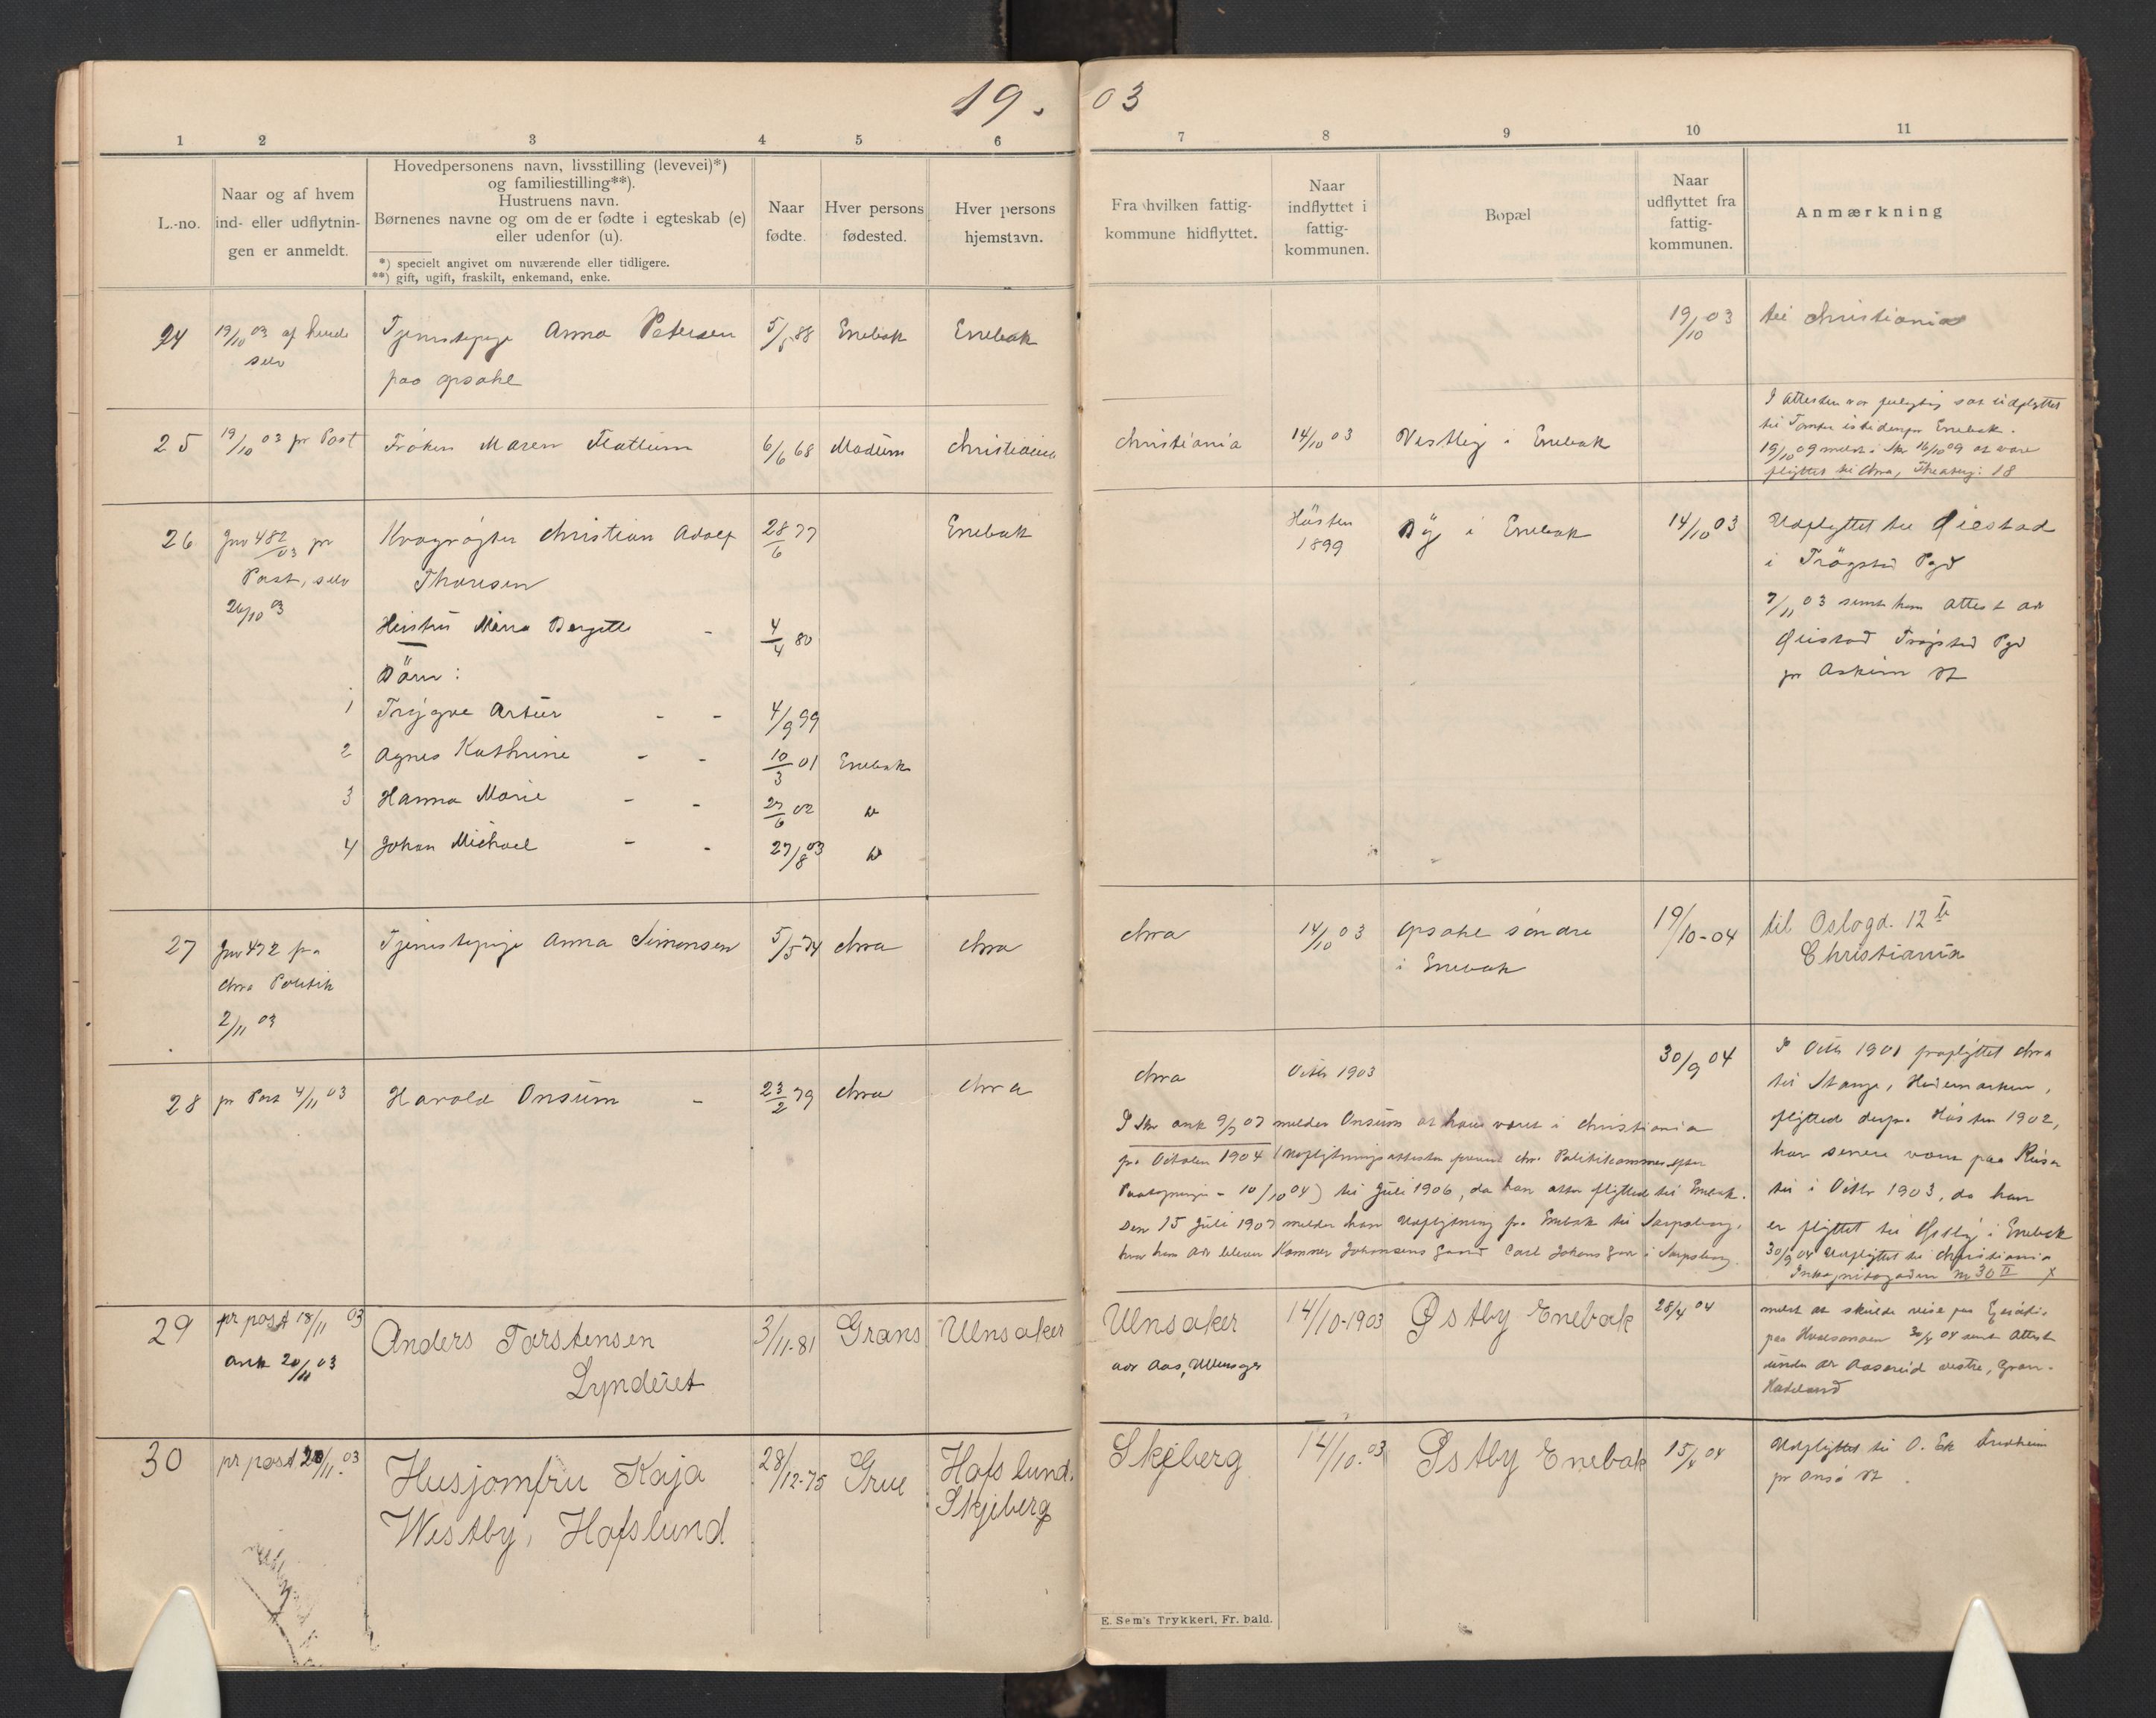 19. 03
1 2 3 4 5 6 7 8 9 10 11
L.-no.
Naar og af hvem
ind- eller udflytnin-
gen er anmeldt.
Hovedpersonens navn, livsstilling (levevei)*)
og familiestilling**).
Hustruens navn.
Børnenes navne og om de er fødte i egteskab (e)
eller udenfor (u).
*) specielt angivet om nuværende eller tidligere.
**) gift, ugift, fraskilt, enkemand, enke.
Naar
fødte.
Hver persons
fødested.
Hver persons
hjemstavn.
Fra hvilken fattig-
kommune hidflyttet.
Naar
indflyttet i
fattig-
kommunen.
Bopæl
Naar
udflyttet fra
fattig-
kommunen.
Anmærkning
24 19/10 03 af hende Tjenestepige Anna Petersen 5/5 88 Enebak Enebak 19/10 03 til Christiania
selv
paa Opsahl
25 19/10 03 pr Post Frøken Maren Flattum 6/6 68 Modum Christiania Christiania 14/10 03 Vestby i Enebak
I Attesten var
til Tomter istedenfor Enebak.
19/10 09 meldt i Skr 16/10 09 at være
flyttet til Chra, Theaterg: 18
26 Jnr 482/03 pr Kvægrøgter Christian Adolf 28/6 77 Enebak Høsten Bÿ i Enebak 14/10 03 Udflyttet til Øiestad
Post, selv Thoresen 1899 i Trøgstad Pgd
26/10 03
Hustru Maria Bergitte - 4/4 80
7/11 03 sendt ham Attest adr
Øiestad Trøgstad Pgd
pr Askim St
Börn:
1 Trÿgve Artur - - 4/9 99
2 Agnes Kathrine - - 10/3 01 Enebak
3 Hanna Marie - - 27/6 02 do
4 Johan Michael - - 27/8 03 do
27 Jnr 492 fra Tjenestepige Anna Simensen 5/5 74 Chra Chra Chra 14/10 03 Opsahl søndre 19/10-04 til Oslogd. 12 b
Chra Politik i Enebak Christiania
2/11 03
28 pr Post 4/11 03 Harald Onsum - 23/2 79 Chra Chra Chra Octbr 1903 30/9 04
I Octbr 1901 fraflyttet Chra
til Stange, Hedemarken,
flyttede derfra Høsten 1902,
har senere været paa Reiser
til i Octbr 1903, da han
er flyttet til Østbÿ i Enebak
30/9 04 Udflyttet til Christiania
Inkognitogaden No 30 II x
I Skr ank 9/7 07 melder Onsum at have været i Christiania
fra Octobr 1904 (Udflytningsattesten Chra Politikammer efter
10/10 04) til Juli 1906, da han atter flyttede til Enebak.
Den 15 Juli 1907 melder han Udflytning fra Enebak til Sarpsborg,
hvor hans Adr bliver Kammer Johansens Gaard Carl Johans Gade i Sarpsborg.
29 pr post 18/11 03 Anders Torstensen 3/11-81 Grans Ulnsaker Ulnsaker 14/10-1903 Østby Enebak 28/4 04
ank 20/11 03 Lynderet adr Aas, Ullensager
meldt at skulde reise
paa 30/4 04 sendt Attest
under adr vestre, Gran
Hadeland
30 pr post 20/11.03 Husjomfru Kaja 28/12-75 Grue Hafslund. Skjeberg 14/10.03 Østby Enebak 15/4 04 Udflyttet til O. Ek
Westby, Hafslund Skjeberg pr Onsø St.
E. Sem's Trykkeri, Fr. hald.